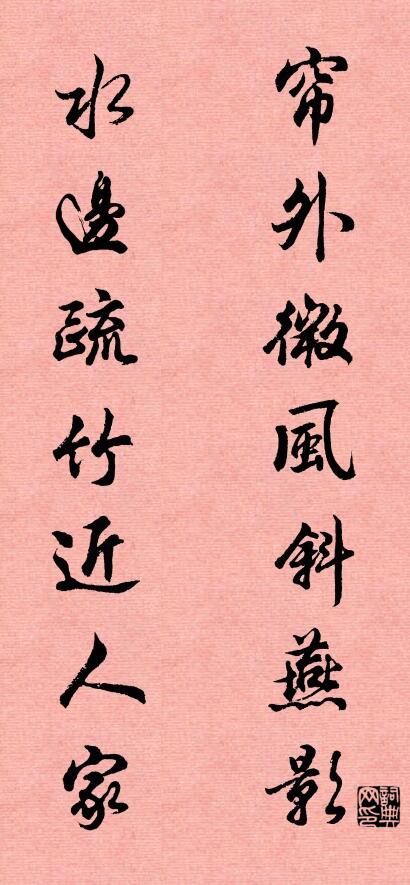 帘外微風斜燕影
水邊疏竹近人家
詞典网印